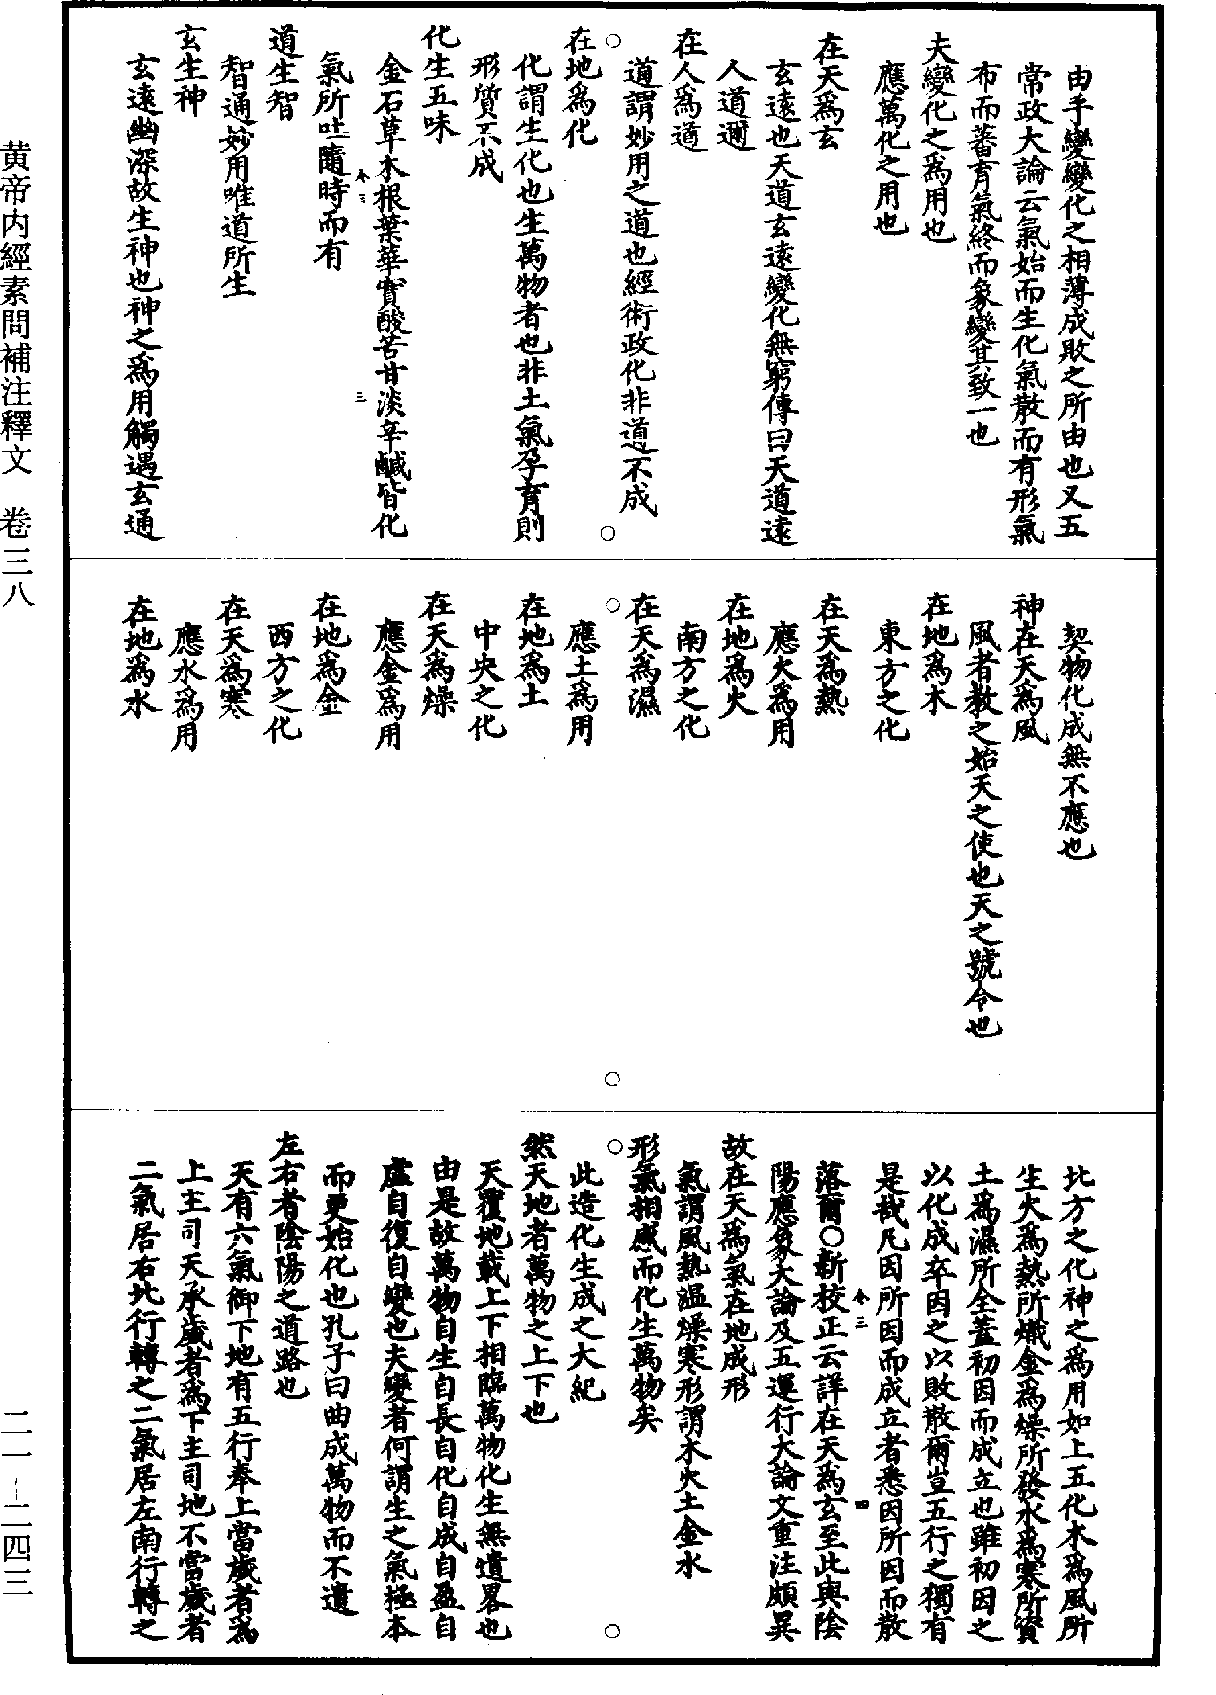 由乎變變化之相薄成敗之所由也又五
常政大論云氣始而生化氣散而有形氣
布而蕃育氣終而象變其致一也
夫變化之爲用也
應萬化之用也
在天爲玄
玄遠也天道玄遠變化無窮傳曰天道遠
人道邇
在人爲道
道謂妙用之道也經術政化非道不成
在地爲化
化謂生化也生萬物者也非土氣孕育則
形質不成
化生五味
金石草木根葉華實酸苦甘淡辛鹹皆化
氣所吐隨時而有
道生智
智通妙用唯道所生
玄生神
玄遠幽深故生神也神之爲用觸遇玄通
契物化成無不應也
神在天爲風
風者教之始天之使也天之號令也
在地爲木
東方之化
在天爲熱
應火爲用
在地爲火
南方之化
在天爲濕
應土爲用
在地爲土
中央之化
在天爲燥
應金爲用
在地爲金
西方之化
在天爲寒
應水爲用
在地爲水
北方之化神之爲用如上五化木爲風所
生火爲熱所熾金爲燥所發水爲寒所資
土爲濕所全蓋初因而成立也雖初因之
以化成卒因之以敗散爾豈五行之獨有
是哉凡因所因而成立者悉因所因而散
落爾○新校正云詳在天爲玄至此與陰
陽應象大論及五運行大論文重注頗異
故在天爲氣在地成形
氣謂風熱溫燥寒形謂木火土金水
形氣相感而化生萬物矣
此造化生成之大紀
然天地者萬物之上下也
天覆地載上下相臨萬物化生無遺畧也
由是故萬物自生自長自化自成自盈自
虛自復自變也夫變者何謂生之氣極本
而更始化也孔子曰曲成萬物而不遺
左右者陰陽之道路也
天有六氣御下地有五行奉上當歲者爲
上主司天承歲者爲下主司地不當歲者
二氣居右北行轉之二氣居左南行轉之
黄帝内經素問補注釋文 卷三八
二一—二四三